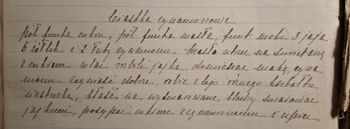 Ciastka cynamonowe
pół funta cukru, pół funta masła, funt mąki 3 jaja
5 żółtek i 2 łuty cynamonu. Masło utrzeć na śmietanę
z cukrem wlać rozbite jajka, domieszać mąkę, cyna-
monu zagnieść dobrze, robić z tego różnego kształtu
ciasteczka, kłaść na wysmarowane blachy smarować
jajkiem, posypać cukrem z cynamonem i upiec